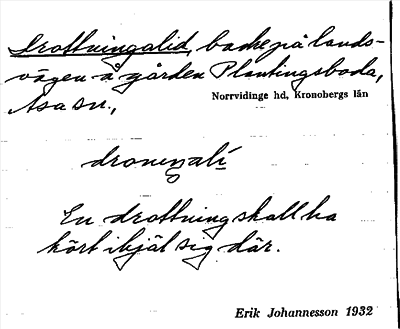 Drottningalid, backe på lands-
vägen å gården Plantingsboda,
Asa sn.,
Norrvidinge hd, Kronobergs län
En drottning skall ha
kört ihjäl sig där.
Erik Johannesson 1932